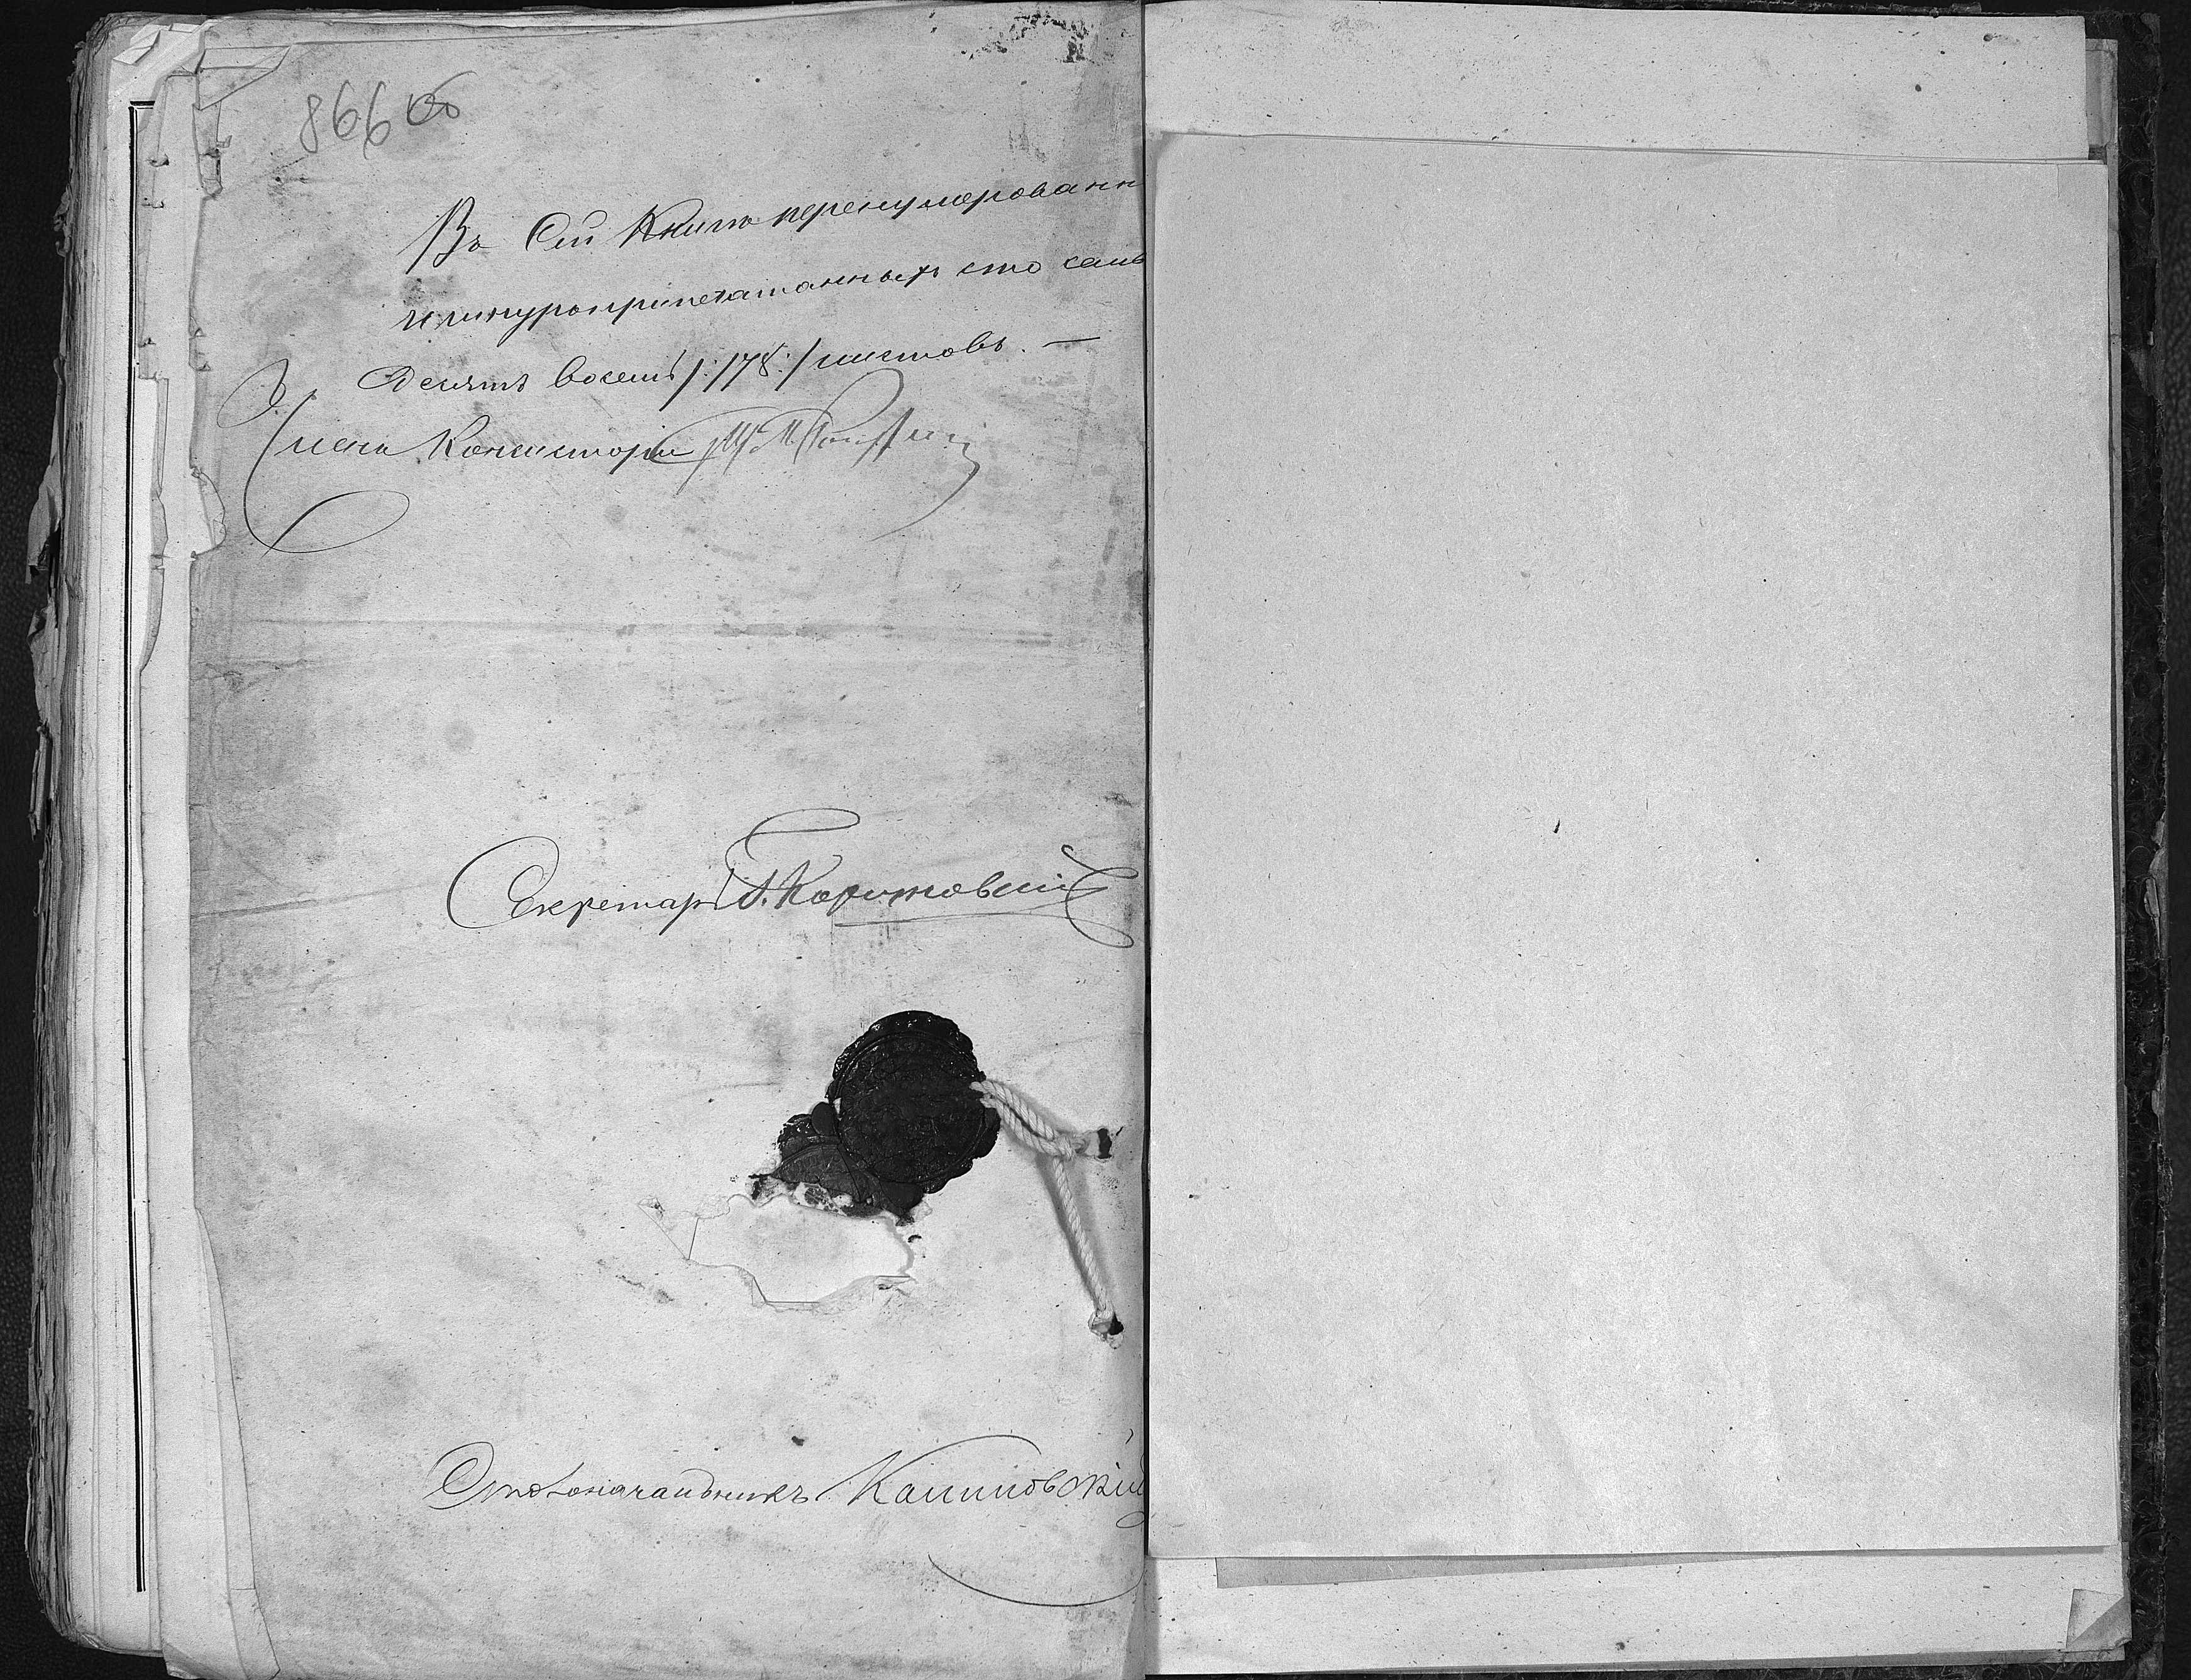 866 об
Въ Сей Книгѣ перенумерованн
и шнуроприпечатанныхъ сто семь
десятъ восемь /:178:/ листовъ. —
Членъ Консисторіи
Секретарь
Столоначальникъ